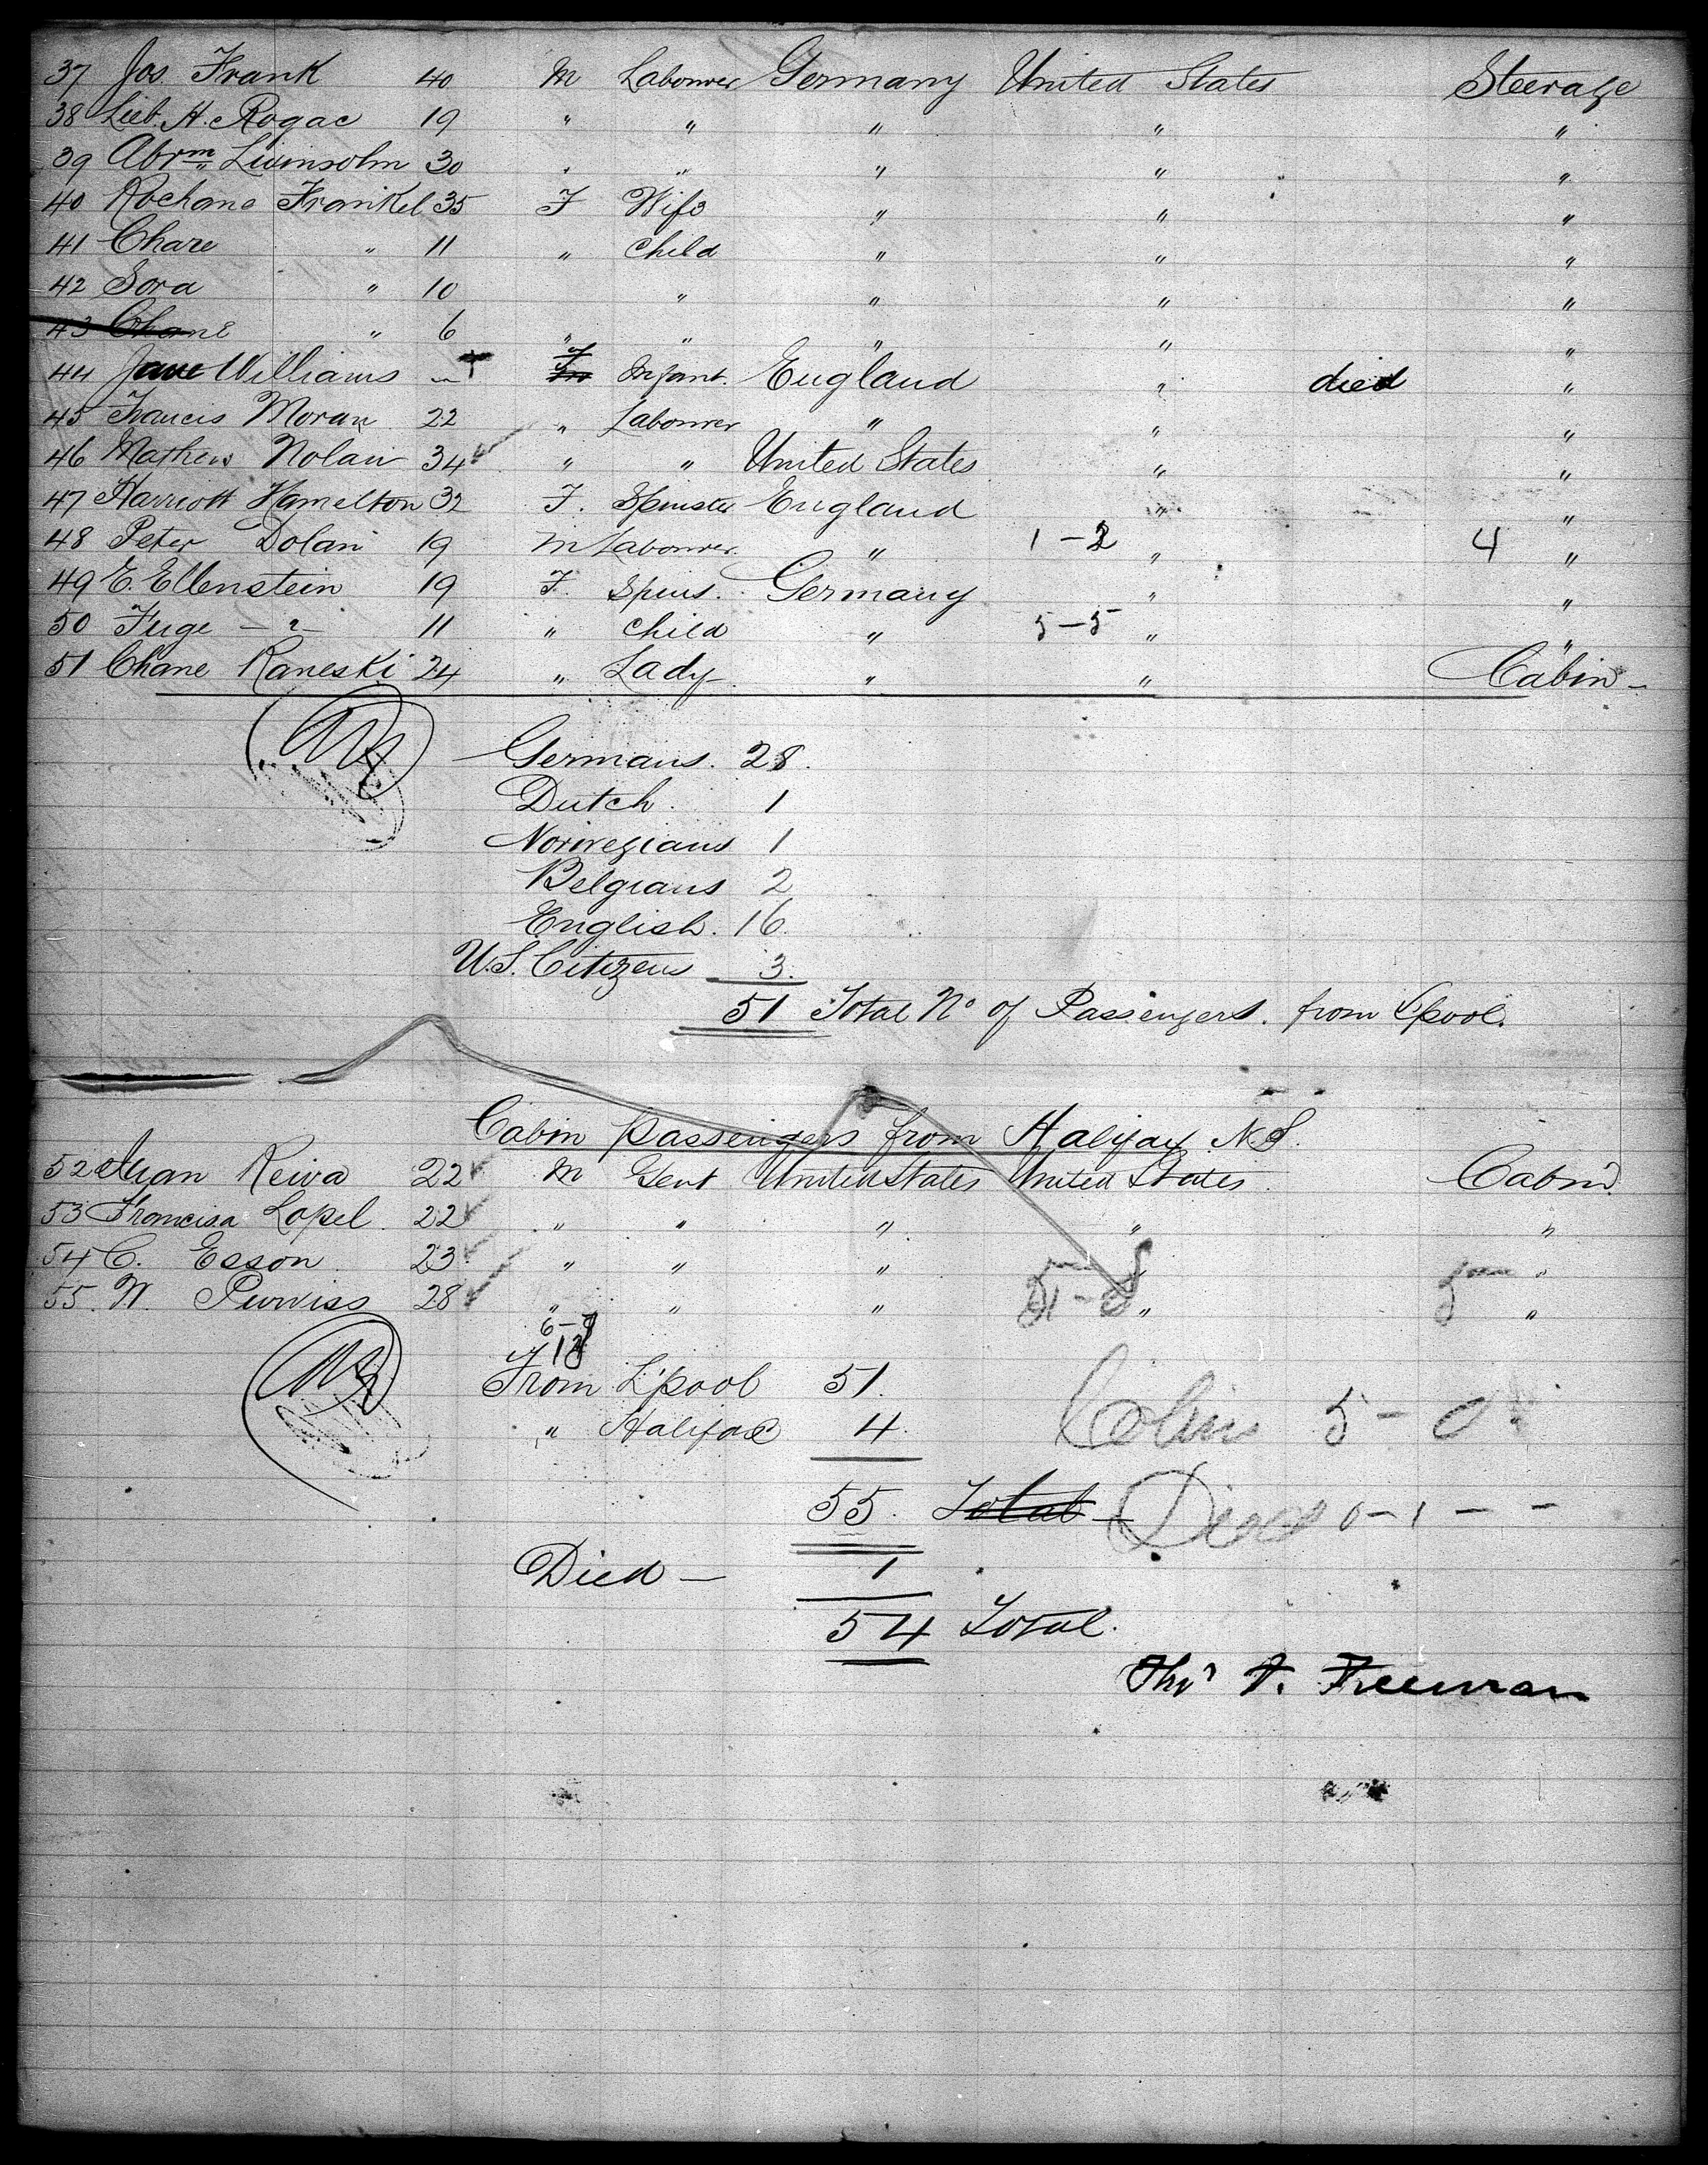 37 Jos Frank 40 M Labourer Germany United States Steerage
38 Lieb. H. Rogac 19 " " " " "
39 Abrm Liumsohn 30 " " " " "
40 Rochane Frankel 35 F Wife " " "
41 Chare " 11 " Child " " "
42 Sora " 10 " " " "
43 Chane " 6 " " " " "
44 Jane Williams F Infant. England " died "
45 Francis Moran 22 " Labourer " " "
46 Mathew Nolan 34 " " United States " "
47 Harriott Hamelton 32 F. Spinster England " "
48 Peter Dolan 19 M Labourer " 1-2 " 4 "
49 E. Ellenstein 19 F. Spins. Germany " "
50 Fuge — " — 11 " Child " 5-5 " "
51 Chane Raneski 24 " Lady " " Cabin
Germans. 28.
Dutch. 1
Norwegians 1
Belgians 2
English. 16.
U.S. Citizens 3.
51 Total No of Passengers. from Lpool.
Cabin Passengers from Halifax N.S.
52 Juan Keiva 22 M Gent United States United States Cabin
53 Francisa Lopel. 22 " " " " "
54 C. Esson 23 " " " " "
55. W. Purviss 28 " " " " "
From L'pool 51.
" Halifax 4.
55. Total
Died 0-1 - -
Died — 1
54 Total.
Thos F. Freeman